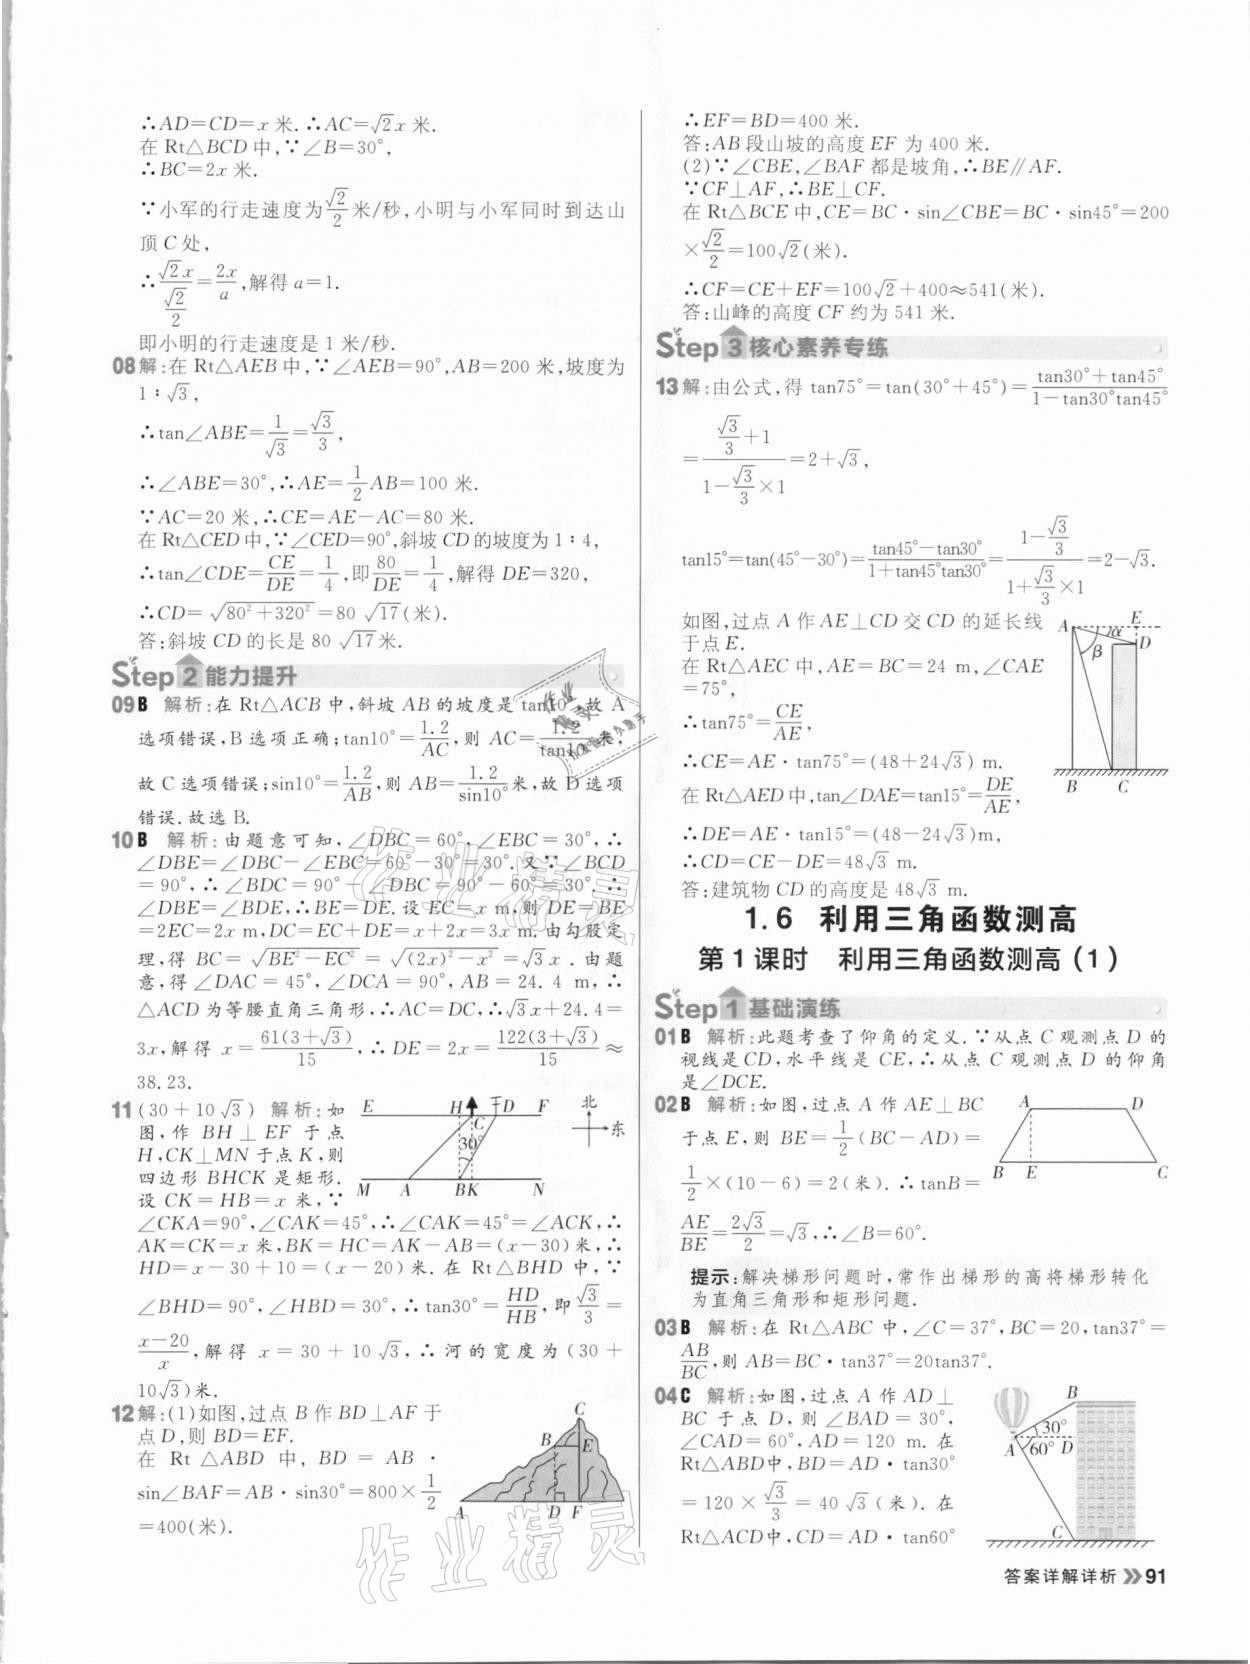 ∴AD=CD=x米.∴AC=√2x米.
在Rt△BCD中,∵∠B=30°,
∴BC=2x米.
∵小军的行走速度为√2/2米/秒,小明与小军同时到达山
顶C处,
∴√2x/(√2/2)=2x/a,解得a=1.
即小明的行走速度是1米/秒.
08解:在Rt△AEB中,∵∠AEB=90°,AB=200米,坡度为
1∶√3,
∴tan∠ABE=1/√3=√3/3,
∴∠ABE=30°,∴AE=1/2AB=100米.
∵AC=20米,∴CE=AE-AC=80米.
在Rt△CED中,∵∠CED=90°,斜坡CD的坡度为1∶4,
∴tan∠CDE=CE/DE=1/4,即80/DE=1/4,解得DE=320,
∴CD=√(80²+320²)=80√17(米).
答:斜坡CD的长是80√17米.
Step 2 能力提升
09 B 解析:在Rt△ACB中,斜坡AB的坡度是tan10°,故A
选项错误,B选项正确;tan10°=1.2/AC,则AC=1.2/tan10°米,
故C选项错误;sin10°=1.2/AB,则AB=1.2/sin10°米,故D选项
错误.故选B.
10 B 解析:由题意可知,∠DBC=60°,∠EBC=30°,∴
∠DBE=∠DBC-∠EBC=60°-30°=30°.又∵∠BCD
=90°,∴∠BDC=90°-∠DBC=90°-60°=30°.∴
∠DBE=∠BDE,∴BE=DE.设EC=x m,则DE=BE
=2EC=2x m,DC=EC+DE=x+2x=3x m.由勾股定
理,得BC=√(BE²-EC²)=√((2x)²-x²)=√3x.由题
意,得∠DAC=45°,∠DCA=90°,AB=24.4 m,∴
△ACD为等腰直角三角形,∴AC=DC,∴√3x+24.4=
3x,解得x=61(3+√3)/15,∴DE=2x=122(3+√3)/15≈
38.23.
11 (30+10√3) 解析:如
图,作BH⊥EF于点
H,CK⊥MN于点K,则
四边形BHCK是矩形.
设CK=HB=x米,∵
E H D F C 30° M A BK N 北 东
∠CKA=90°,∠CAK=45°,∴∠CAK=45°=∠ACK,∴
AK=CK=x米,BK=HC=AK-AB=(x-30)米,∴
HD=x-30+10=(x-20)米.在Rt△BHD中,∵
∠BHD=90°,∠HBD=30°,∴tan30°=HD/HB,即√3/3=
(x-20)/x,解得x=30+10√3,∴河的宽度为(30+
10√3)米.
12解:(1)如图,过点B作BD⊥AF于
点D,则BD=EF.
在Rt△ABD中,BD=AB·
sin∠BAF=AB·sin30°=800×1/2
=400(米).
C B E A D F
∴EF=BD=400米.
答:AB段山坡的高度EF为400米.
(2)∵∠CBE,∠BAF都是坡角,∴BE∥AF.
∵CF⊥AF,∴BE⊥CF.
在Rt△BCE中,CE=BC·sin∠CBE=BC·sin45°=200
×√2/2=100√2(米).
∴CF=CE+EF=100√2+400≈541(米).
答:山峰的高度CF约为541米.
Step 3 核心素养专练
13解:由公式,得tan75°=tan(30°+45°)=(tan30°+tan45°)/(1-tan30°tan45°)
=(√3/3+1)/(1-√3/3×1)=2+√3,
tan15°=tan(45°-30°)=(tan45°-tan30°)/(1+tan45°tan30°)=(1-√3/3)/(1+√3/3×1)=2-√3.
如图,过点A作AE⊥CD交CD的延长线
于点E.
在Rt△AEC中,AE=BC=24 m,∠CAE
=75°,
∴tan75°=CE/AE,
∴CE=AE·tan75°=(48+24√3) m.
在Rt△AED中,tan∠DAE=tan15°=DE/AE,
A E α β D B C
∴DE=AE·tan15°=(48-24√3)m,
∴CD=CE-DE=48√3 m.
答:建筑物CD的高度是48√3 m.
1.6 利用三角函数测高
第1课时 利用三角函数测高(1)
Step 1 基础演练
01 B 解析:此题考查了仰角的定义.∵从点C观测点D的
视线是CD,水平线是CE,∴从点C观测点D的仰角
是∠DCE.
02 B 解析:如图,过点A作AE⊥BC
于点E,则BE=1/2(BC-AD)=
1/2×(10-6)=2(米).∴tanB=
A D B E C
AE/BE=2√3/2=√3,∴∠B=60°.
提示:解决梯形问题时,常作出梯形的高将梯形转化
为直角三角形和矩形问题.
03 B 解析:在Rt△ABC中,∠C=37°,BC=20,tan37°=
AB/BC,则AB=BC·tan37°=20tan37°.
04 C 解析:如图,过点A作AD⊥
BC于点D,则∠BAD=30°,
∠CAD=60°,AD=120 m.在
Rt△ABD中,BD=AD·tan30°
=120×√3/3=40√3(米).在
Rt△ACD中,CD=AD·tan60°
B 30° A 60° D C
答案详解详析 91
作业精灵
作业精灵
作业精灵